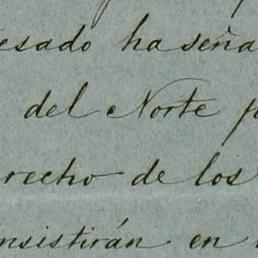 esado ha seña
del Norte p
recho de los
nsistirán en